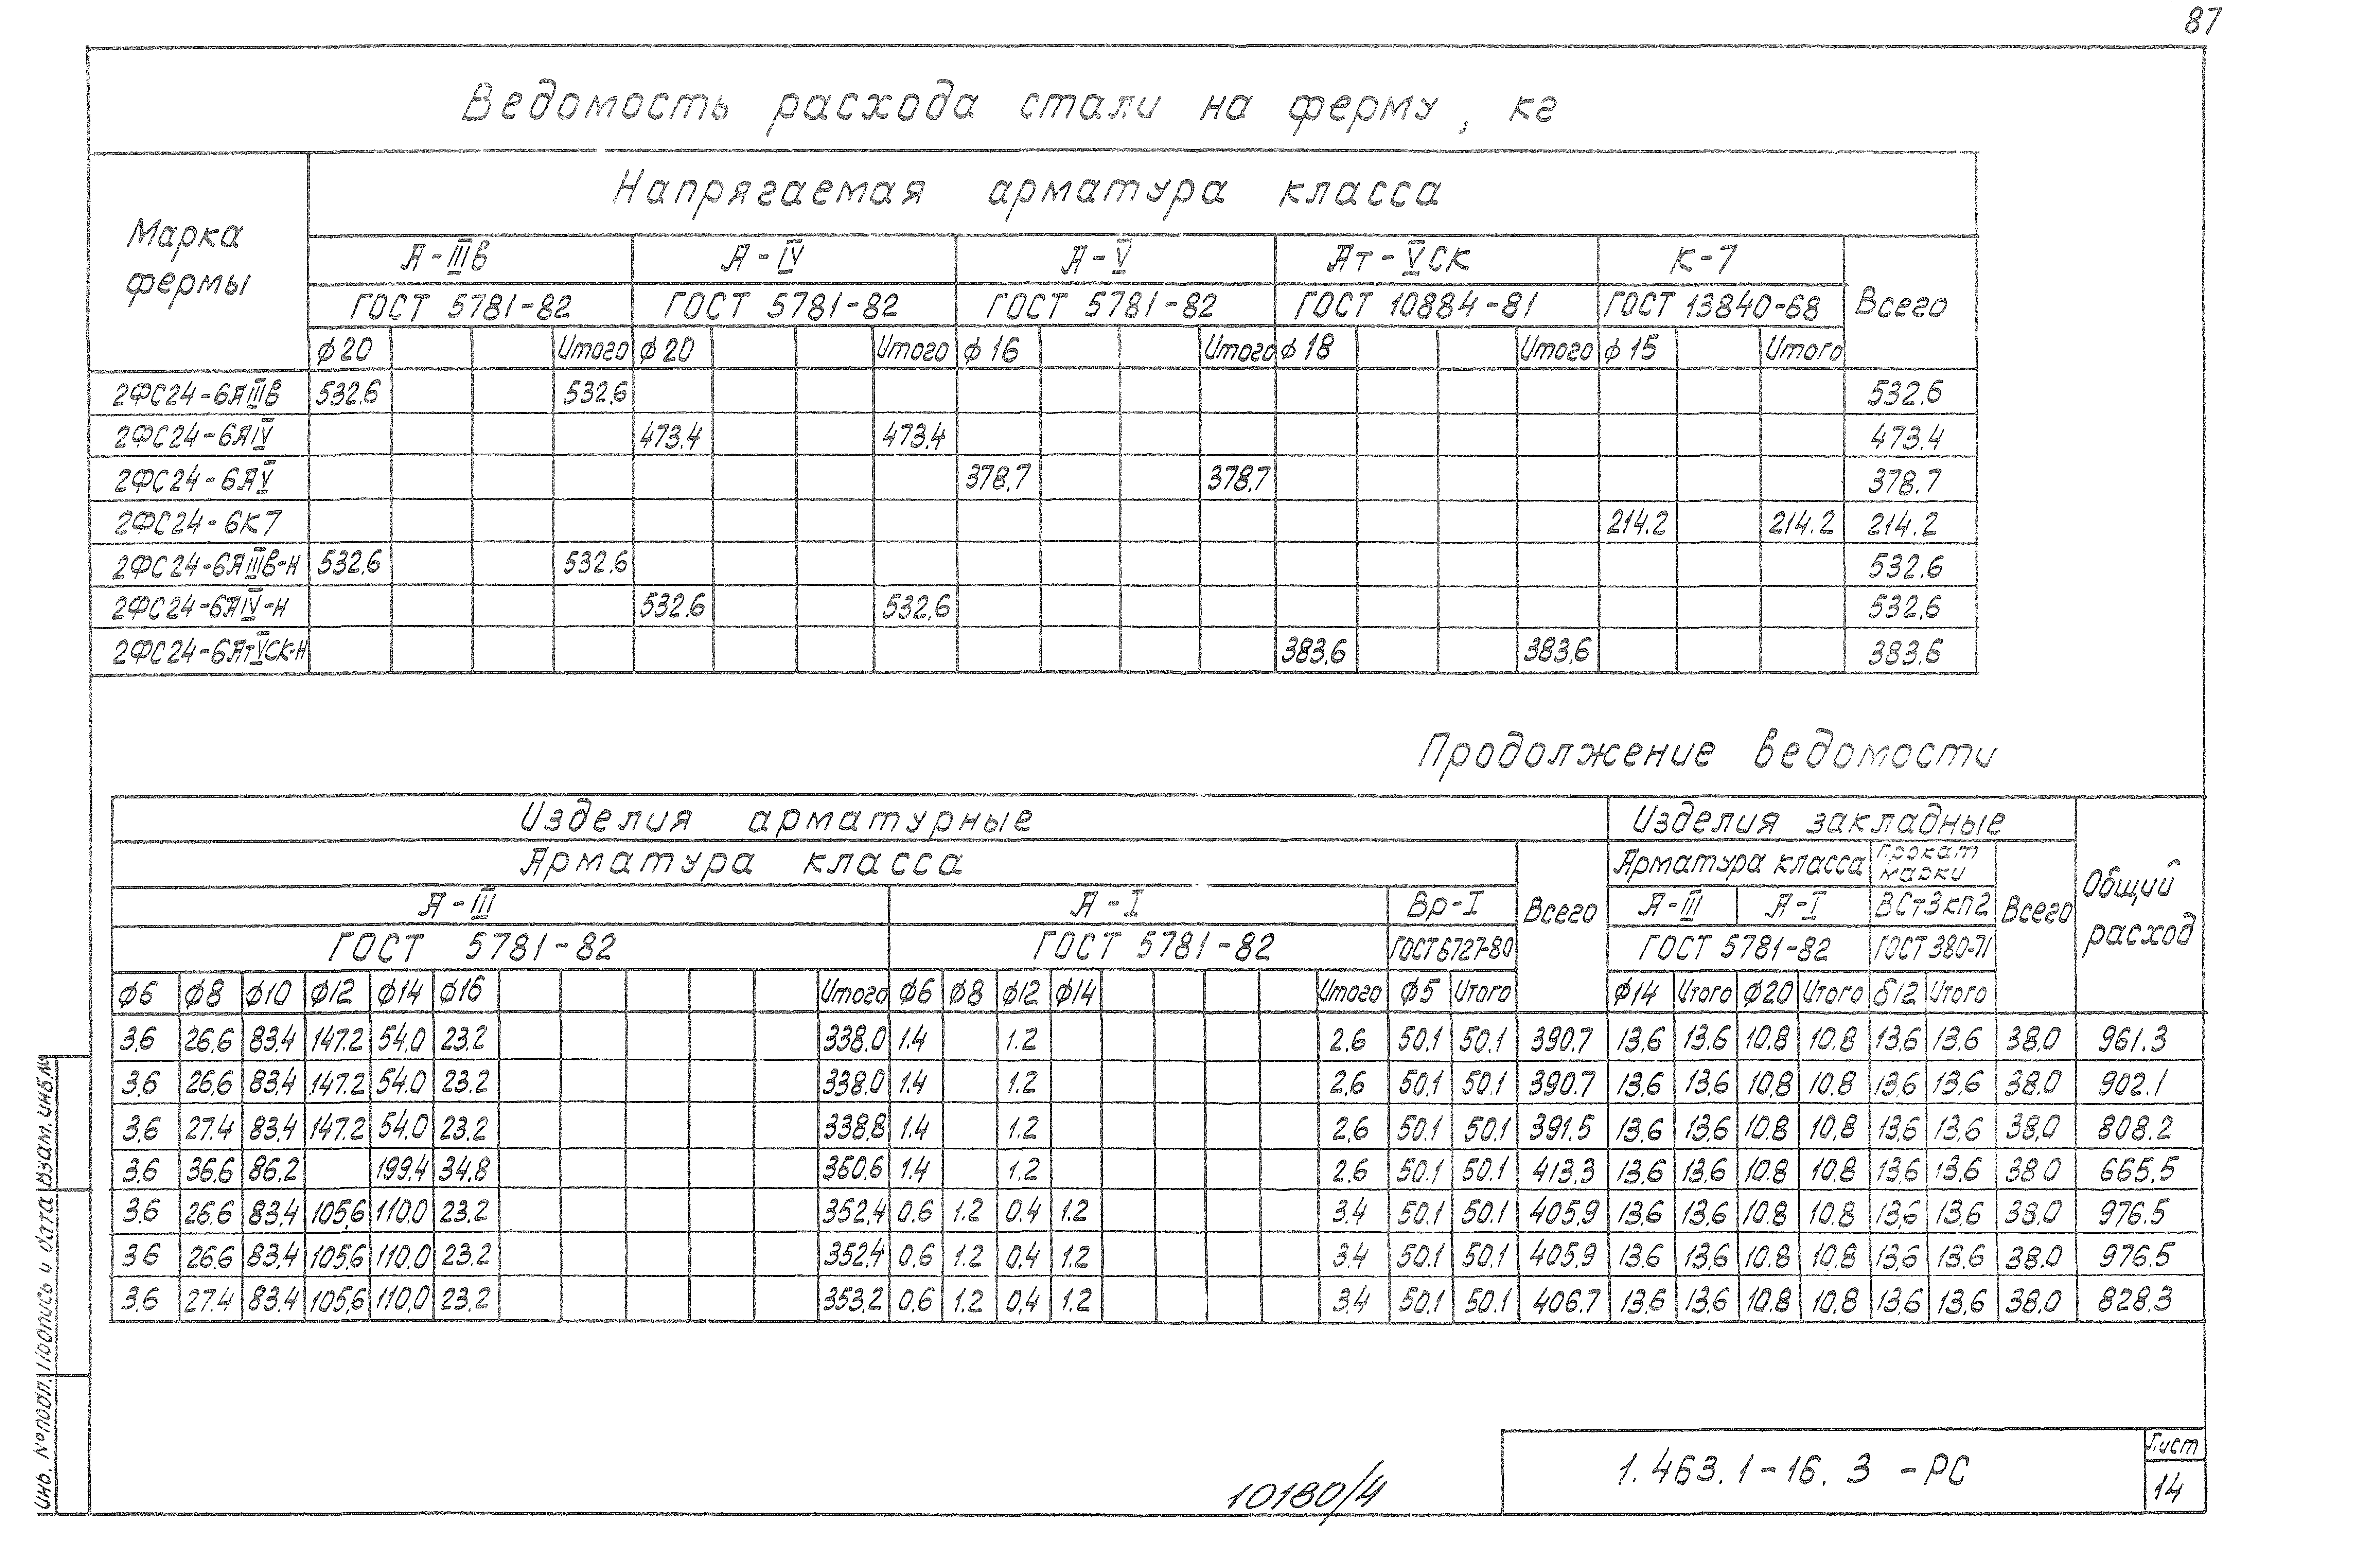 87
Ведомость расхода стали на ферму, кг
Марка фермы
Напрягаемая арматура класса
А-IIIв А-IV А-V Ат-VСК К-7 Всего
ГОСТ 5781-82 ГОСТ 5781-82 ГОСТ 5781-82 ГОСТ 10884-81 ГОСТ 13840-68
ф20 Итого ф20 Итого ф16 Итого ф18 Итого ф15 Итого
2ФС24-6АIIIв 532.6 532.6 532.6
2ФС24-6АIV 473.4 473.4 473.4
2ФС24-6АV 378.7 378.7 378.7
2ФС24-6К7 214.2 214.2 214.2
2ФС24-6АIIIв-Н 532.6 532.6 532.6
2ФС24-6АIV-Н 532.6 532.6 532.6
2ФС24-6АтVСК-Н 383.6 383.6 383.6
Продолжение ведомости
Изделия арматурные Изделия закладные Общий расход
Арматура класса Всего Арматура класса Прокат марки Всего
А-III А-I Вр-I А-III А-I ВСт3кп2
ГОСТ 5781-82 ГОСТ 5781-82 ГОСТ 6727-80 ГОСТ 5781-82 ГОСТ 380-71
ф6 ф8 ф10 ф12 ф14 ф16 Итого ф6 ф8 ф12 ф14 Итого ф5 Итого ф14 Итого ф20 Итого δ12 Итого
3.6 26.6 83.4 147.2 54.0 23.2 338.0 1.4 1.2 2.6 50.1 50.1 390.7 13.6 13.6 10.8 10.8 13.6 13.6 38.0 961.3
3.6 26.6 83.4 147.2 54.0 23.2 338.0 1.4 1.2 2.6 50.1 50.1 390.7 13.6 13.6 10.8 10.8 13.6 13.6 38.0 902.1
3.6 27.4 83.4 147.2 54.0 23.2 338.8 1.4 1.2 2.6 50.1 50.1 391.5 13.6 13.6 10.8 10.8 13.6 13.6 38.0 808.2
3.6 36.6 86.2 199.4 34.8 360.6 1.4 1.2 2.6 50.1 50.1 413.3 13.6 13.6 10.8 10.8 13.6 13.6 38.0 665.5
3.6 26.6 83.4 105.6 110.0 23.2 352.4 0.6 1.2 0.4 1.2 3.4 50.1 50.1 405.9 13.6 13.6 10.8 10.8 13.6 13.6 38.0 976.5
3.6 26.6 83.4 105.6 110.0 23.2 352.4 0.6 1.2 0.4 1.2 3.4 50.1 50.1 405.9 13.6 13.6 10.8 10.8 13.6 13.6 38.0 976.5
3.6 27.4 83.4 105.6 110.0 23.2 353.2 0.6 1.2 0.4 1.2 3.4 50.1 50.1 406.7 13.6 13.6 10.8 10.8 13.6 13.6 38.0 828.3
Инв. № подл. Подпись и дата Взам. инв. №
10180/4
1.463.1-16.3 -РС
Лист
14